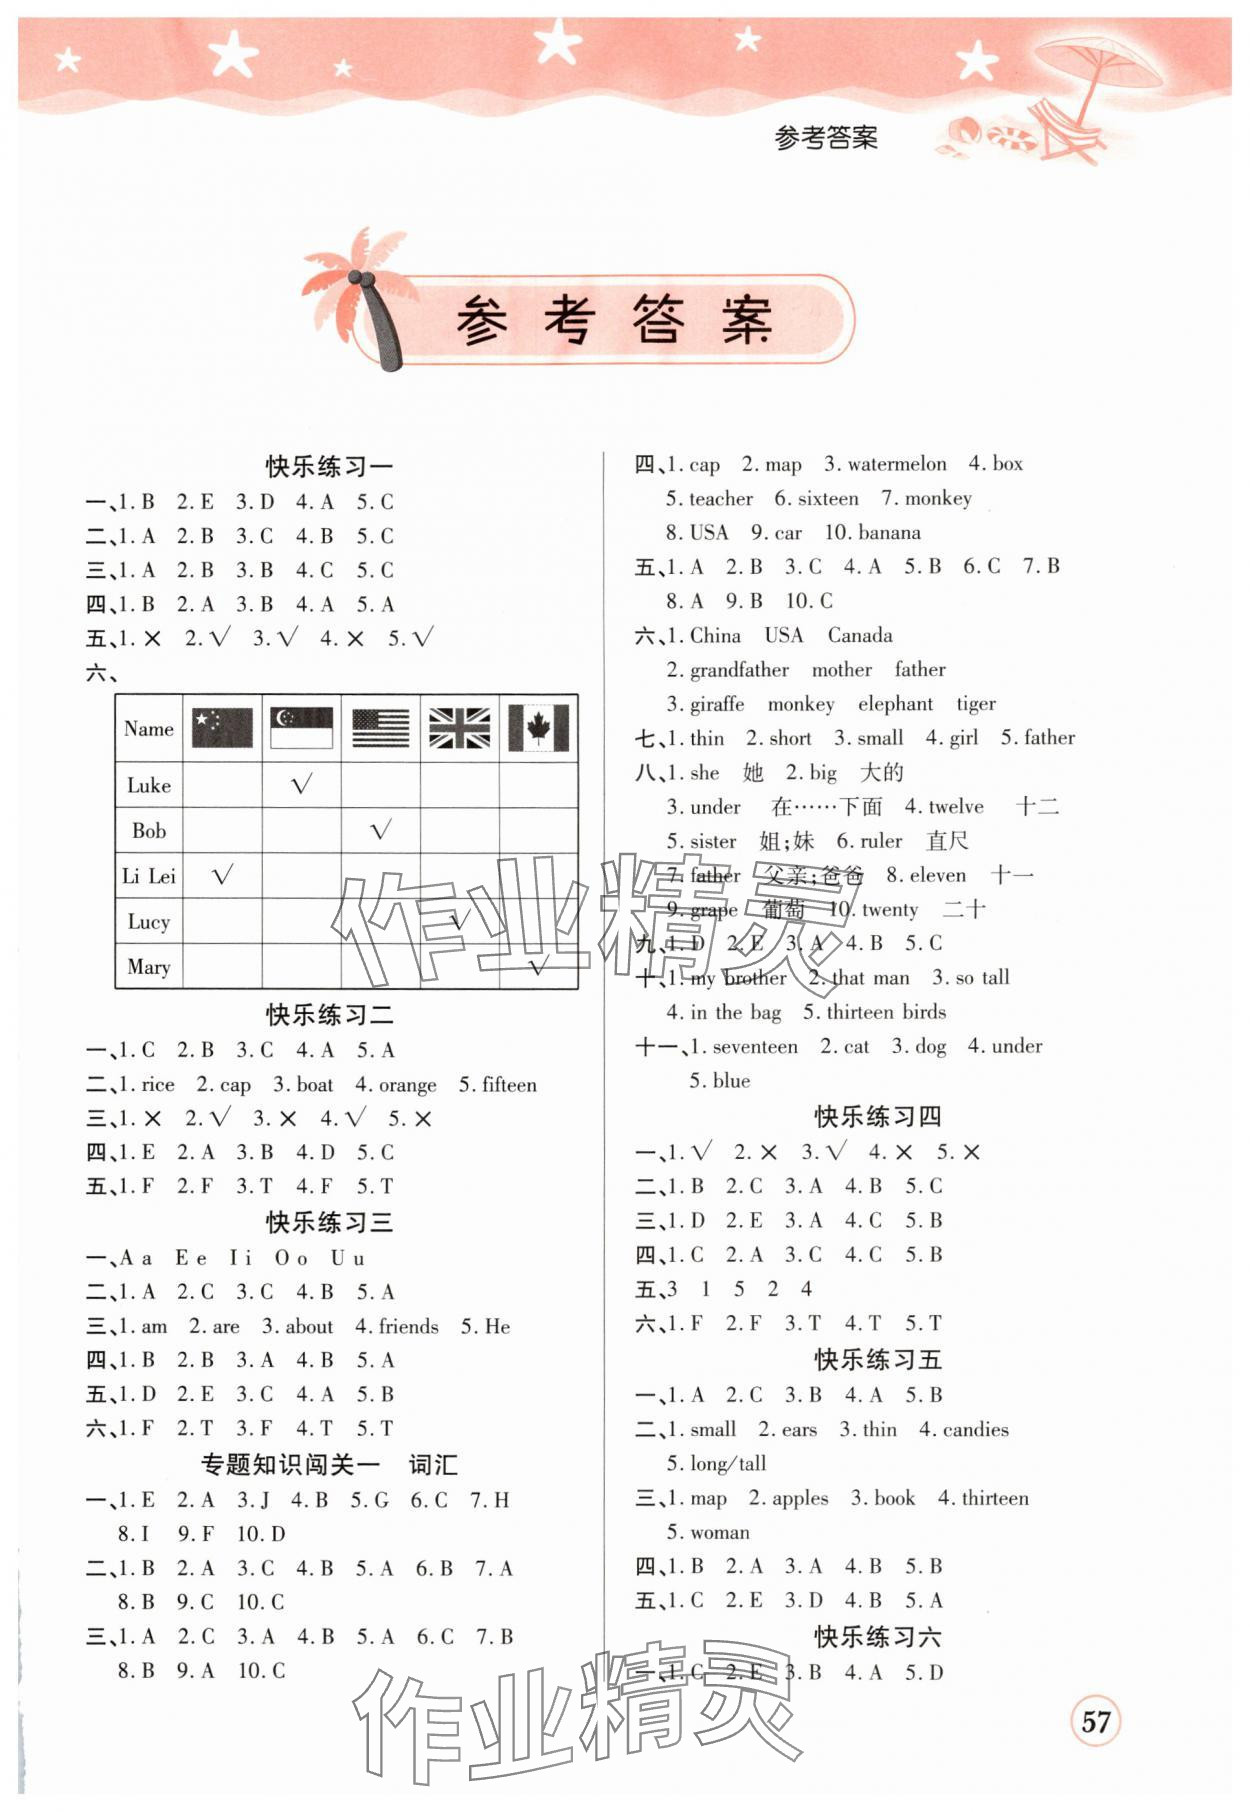 参考答案
参考答案
快乐练习一
一、1. B 2. E 3. D 4. A 5. C
二、1. A 2. B 3. C 4. B 5. C
三、1. A 2. B 3. B 4. C 5. C
四、1. B 2. A 3. B 4. A 5. A
五、1. × 2. √ 3. √ 4. × 5. √
六、
Name
Luke √
Bob √
Li Lei √
Lucy √
Mary √
快乐练习二
一、1. C 2. B 3. C 4. A 5. A
二、1. rice 2. cap 3. boat 4. orange 5. fifteen
三、1. × 2. √ 3. × 4. √ 5. ×
四、1. E 2. A 3. B 4. D 5. C
五、1. F 2. F 3. T 4. F 5. T
快乐练习三
一、A a E e I i O o U u
二、1. A 2. C 3. C 4. B 5. A
三、1. am 2. are 3. about 4. friends 5. He
四、1. B 2. B 3. A 4. B 5. A
五、1. D 2. E 3. C 4. A 5. B
六、1. F 2. T 3. F 4. T 5. T
专题知识闯关一 词汇
一、1. E 2. A 3. J 4. B 5. G 6. C 7. H
8. I 9. F 10. D
二、1. B 2. A 3. C 4. B 5. A 6. B 7. A
8. B 9. C 10. C
三、1. A 2. C 3. A 4. B 5. A 6. C 7. B
8. B 9. A 10. C
四、1. cap 2. map 3. watermelon 4. box
5. teacher 6. sixteen 7. monkey
8. USA 9. car 10. banana
五、1. A 2. B 3. C 4. A 5. B 6. C 7. B
8. A 9. B 10. C
六、1. China USA Canada
2. grandfather mother father
3. giraffe monkey elephant tiger
七、1. thin 2. short 3. small 4. girl 5. father
八、1. she 她 2. big 大的
3. under 在……下面 4. twelve 十二
5. sister 姐;妹 6. ruler 直尺
7. father 父亲;爸爸 8. eleven 十一
9. grape 葡萄 10. twenty 二十
九、1. D 2. E 3. A 4. B 5. C
十、1. my brother 2. that man 3. so tall
4. in the bag 5. thirteen birds
十一、1. seventeen 2. cat 3. dog 4. under
5. blue
快乐练习四
一、1. √ 2. × 3. √ 4. × 5. ×
二、1. B 2. C 3. A 4. B 5. C
三、1. D 2. E 3. A 4. C 5. B
四、1. C 2. A 3. C 4. C 5. B
五、3 1 5 2 4
六、1. F 2. F 3. T 4. T 5. T
快乐练习五
一、1. A 2. C 3. B 4. A 5. B
二、1. small 2. ears 3. thin 4. candies
5. long/tall
三、1. map 2. apples 3. book 4. thirteen
5. woman
四、1. B 2. A 3. A 4. B 5. B
五、1. C 2. E 3. D 4. B 5. A
快乐练习六
一、1. C 2. E 3. B 4. A 5. D
作业精灵
作业精灵
57